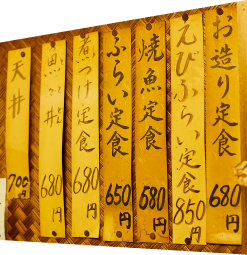 お造り定食
680円
えびふらい定食
850円
焼魚定食
580円
ふらい定食
650円
煮つけ定食
680円
680円
天丼
700円